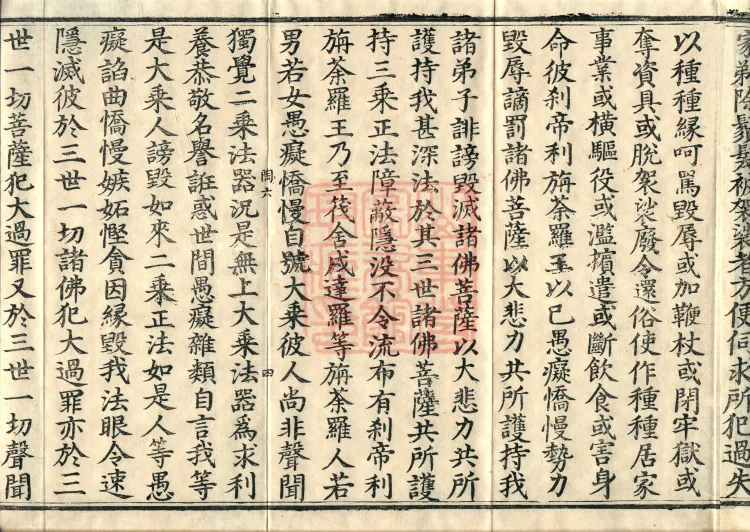 家剃除鬚髮被袈裟者方便伺求所犯過失
以種種縁呵罵毀辱或加鞭杖或閉牢獄或
奪資具或脫袈裟廢令還俗使作種種居家
事業或橫驅役或濫擯遣或斷飲食或害身
命彼刹帝利旃荼羅王以已愚癡憍慢勢力
毀辱謫罰諸佛菩薩以大悲力共所護持我
諸弟子誹謗毀滅諸佛菩薩以大悲力共所
護持我甚深法於其三世諸佛菩薩共所護
持三乘正法障蔽隱没不令流布有刹帝利
旃荼羅王乃至筏舍戍達羅等旃荼羅人若
男若女愚癡憍慢自號大乘彼人尚非聲聞
陶六 四
獨覺二乘法器況是無上大乘法器為求利
養恭敬名譽誑惑世間愚癡雜類自言我等
是大乘人謗毀如來二乘正法如是人等愚
癡諂曲憍慢嫉妬慳貪因縁毀我法眼令速
隱滅彼於三世一切諸佛犯大過罪亦於三
世一切菩薩犯大過罪又於三世一切聲聞